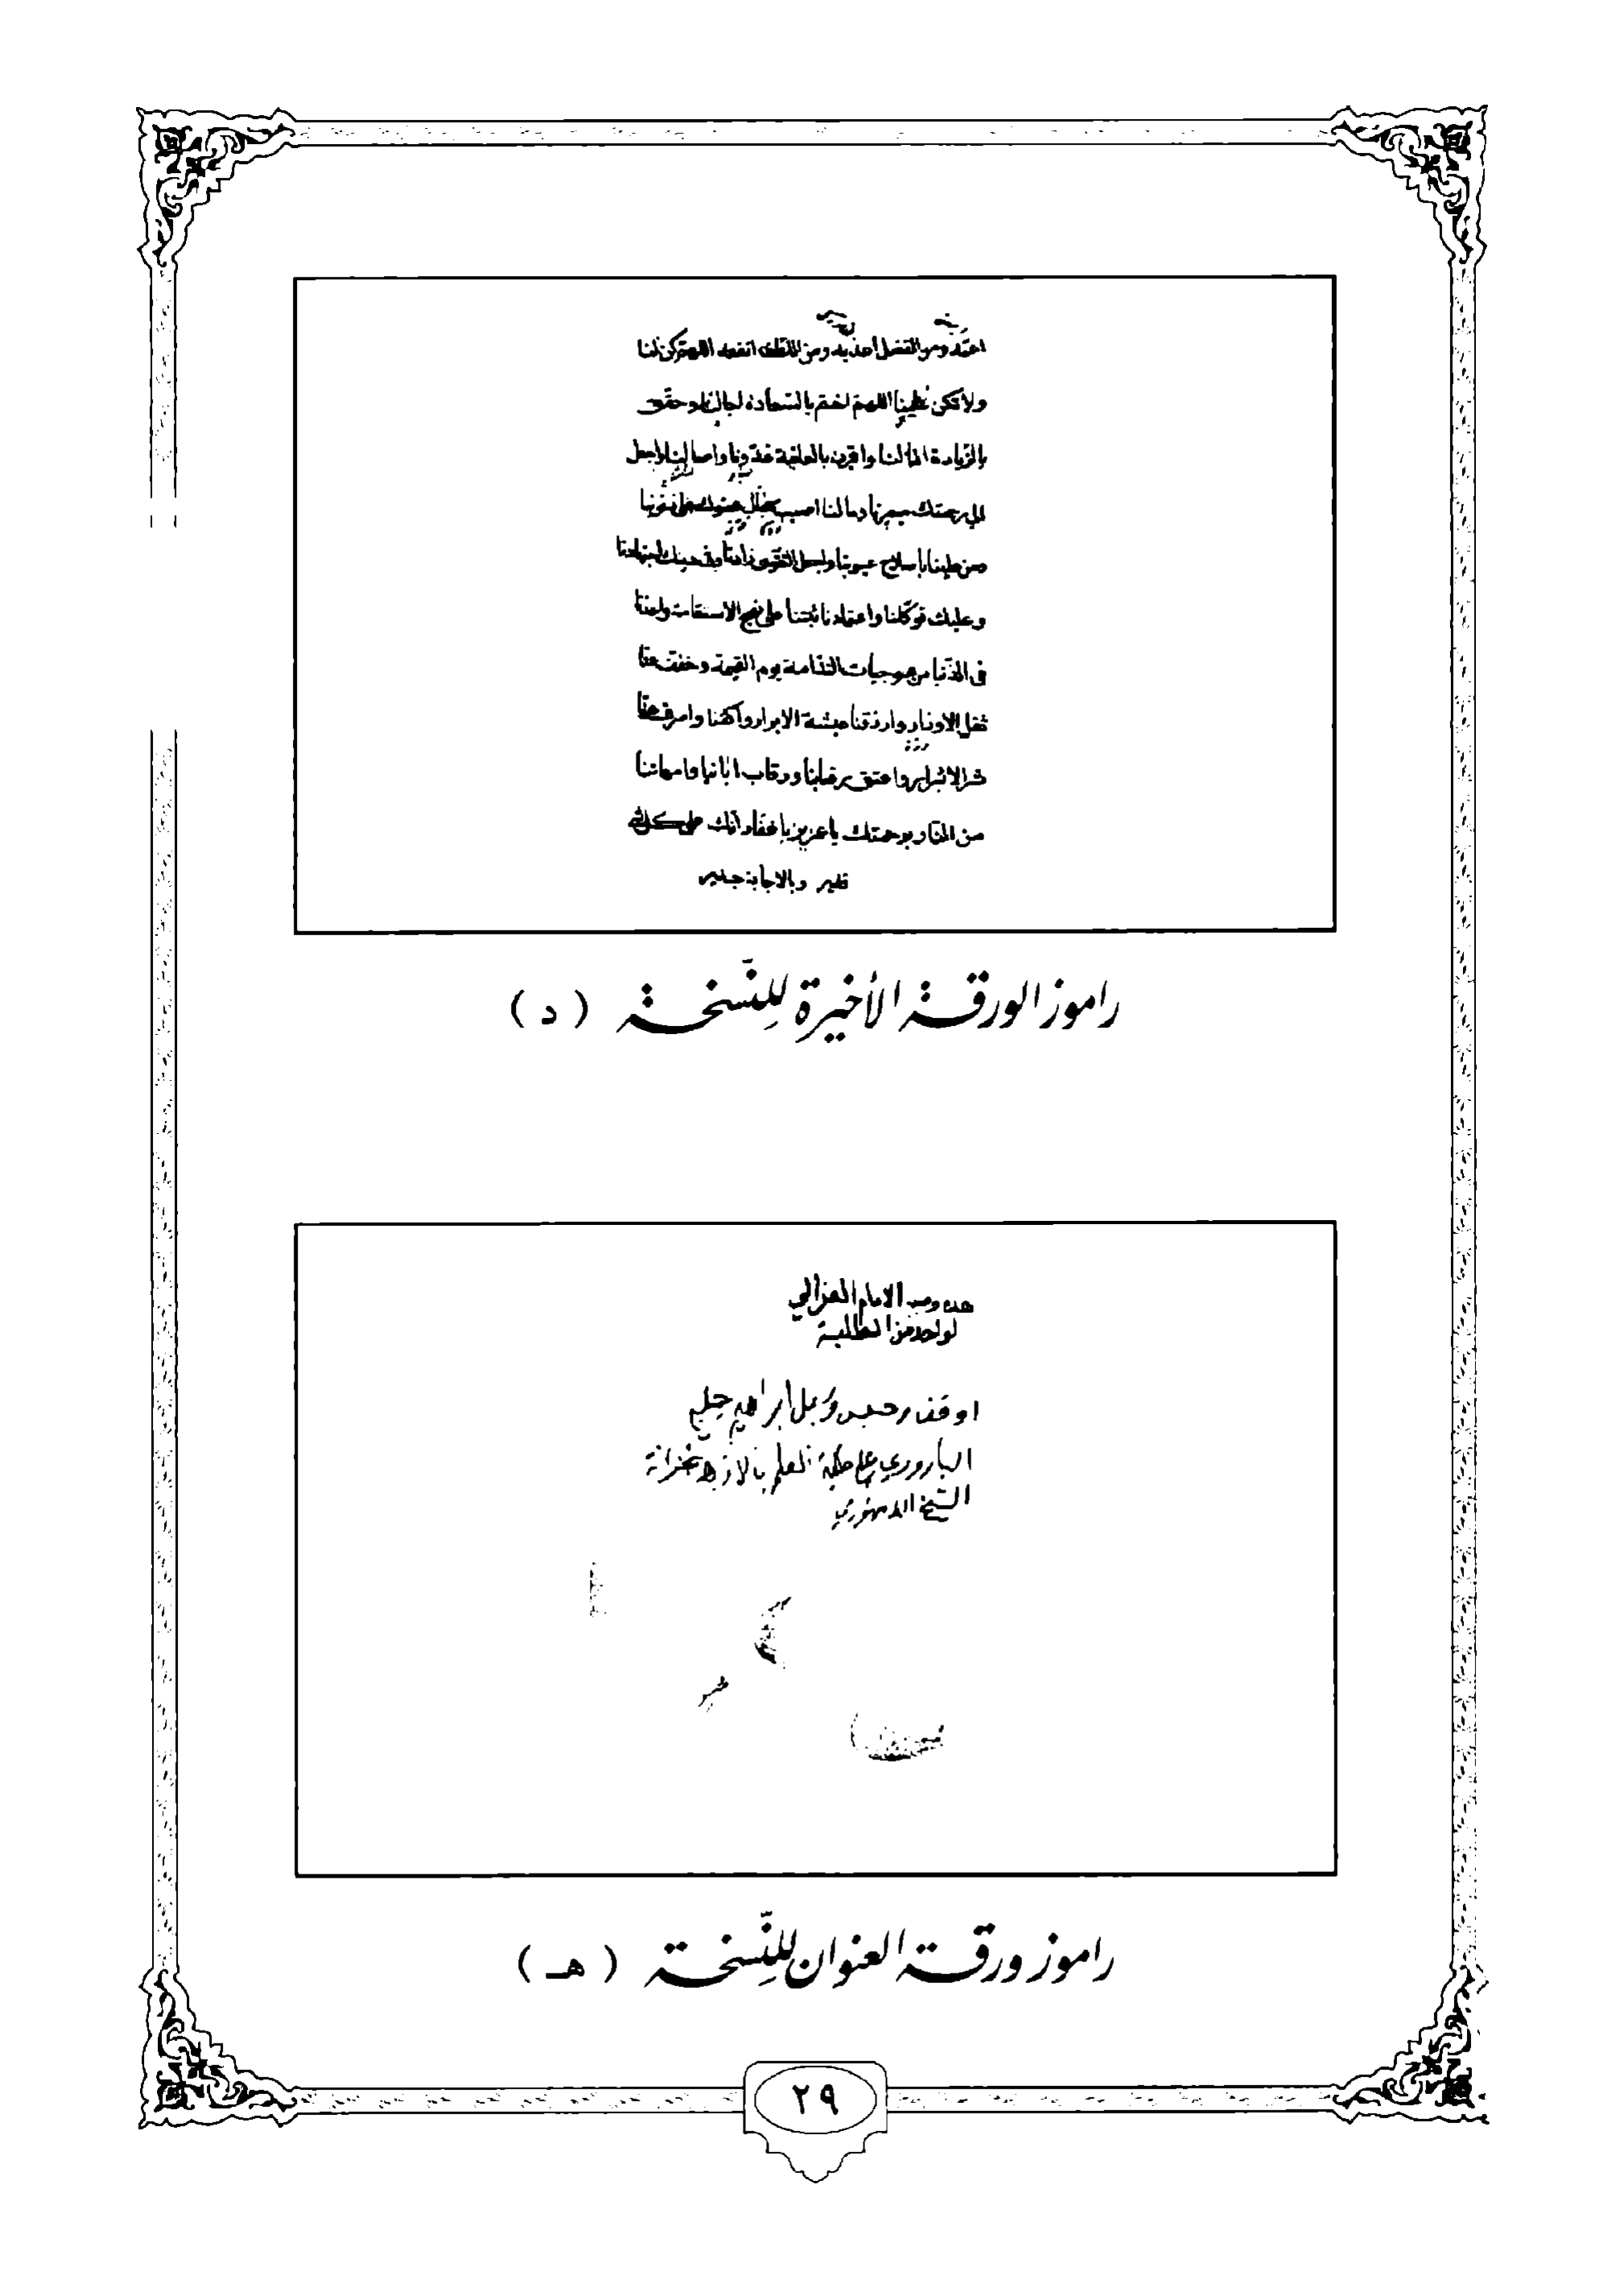 اعمّه ومن الفضل أعذبه ومن اللطف انفعه اللهم كن لنا
ولا تكن علينا اللهم اختم بالسعادة اجالنا وحقق
بالزيادة امالنا واقرن بالعافية غدونا واصالنا واجعل
الي رحمتك مصيرنا ومالنا اصبب سجال عفوك على ذنوبنا
ومن علينا باصلاح عيوبنا واجعل التقوى زادنا وفي دينك اجتهادنا
وعليك توكلنا واعتمادنا ثبتنا على نهج الاستقامة واعذنا
في الدنيا من موجبات الندامة يوم القيمة وخفف عنا
ثقل الاوزار وارزقنا عيشة الابرار واكفنا واصرف عنا
شر الاشرار واعتق رقابنا ورقاب ابائنا وامهاتنا
من النار برحمتك يا عزيز يا غفار انك على كل شي
قدير وبالاجابة جدير
راموز الورقة الأخيرة للنّسخة ( د )
هذه وصية الامام الغزالي
لواحد من الطلبة
اوقف وحبس وسبل ابراهيم جلبي
الباروري على طلبة العلم بالازهر بخزانة
الشيخ الدمنهوري
راموز ورقة العنوان للنّسخة ( هـ )
٢٩